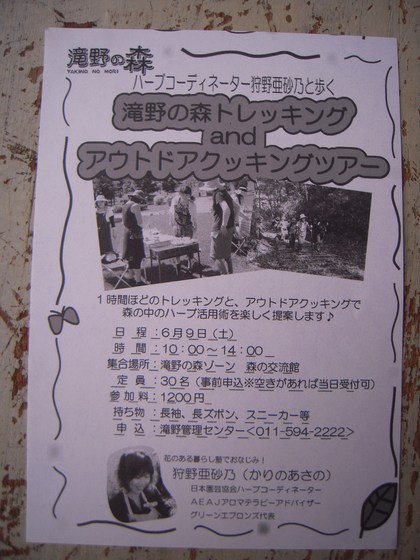 滝野の森
TAKINO NO MORI
ハーブコーディネーター狩野亜砂乃と歩く
滝野の森トレッキング
and
アウトドアクッキングツアー
1時間ほどのトレッキングと、アウトドアクッキングで
森の中のハーブ活用術を楽しく提案します♪
日　程：6月9日（土）
時　間：10:00～14:00
集合場所：滝野の森ゾーン　森の交流館
定　員：30名（事前申込※空きがあれば当日受付可）
参加料：1200円
持ち物：長袖、長ズボン、スニーカー等
申　込：滝野管理センター<011-594-2222>
花のある暮らし塾でおなじみ！
狩野亜砂乃（かりのあさの）
日本園芸協会ハーブコーディネーター
AEAJアロマテラピーアドバイザー
グリーンエプロンズ代表